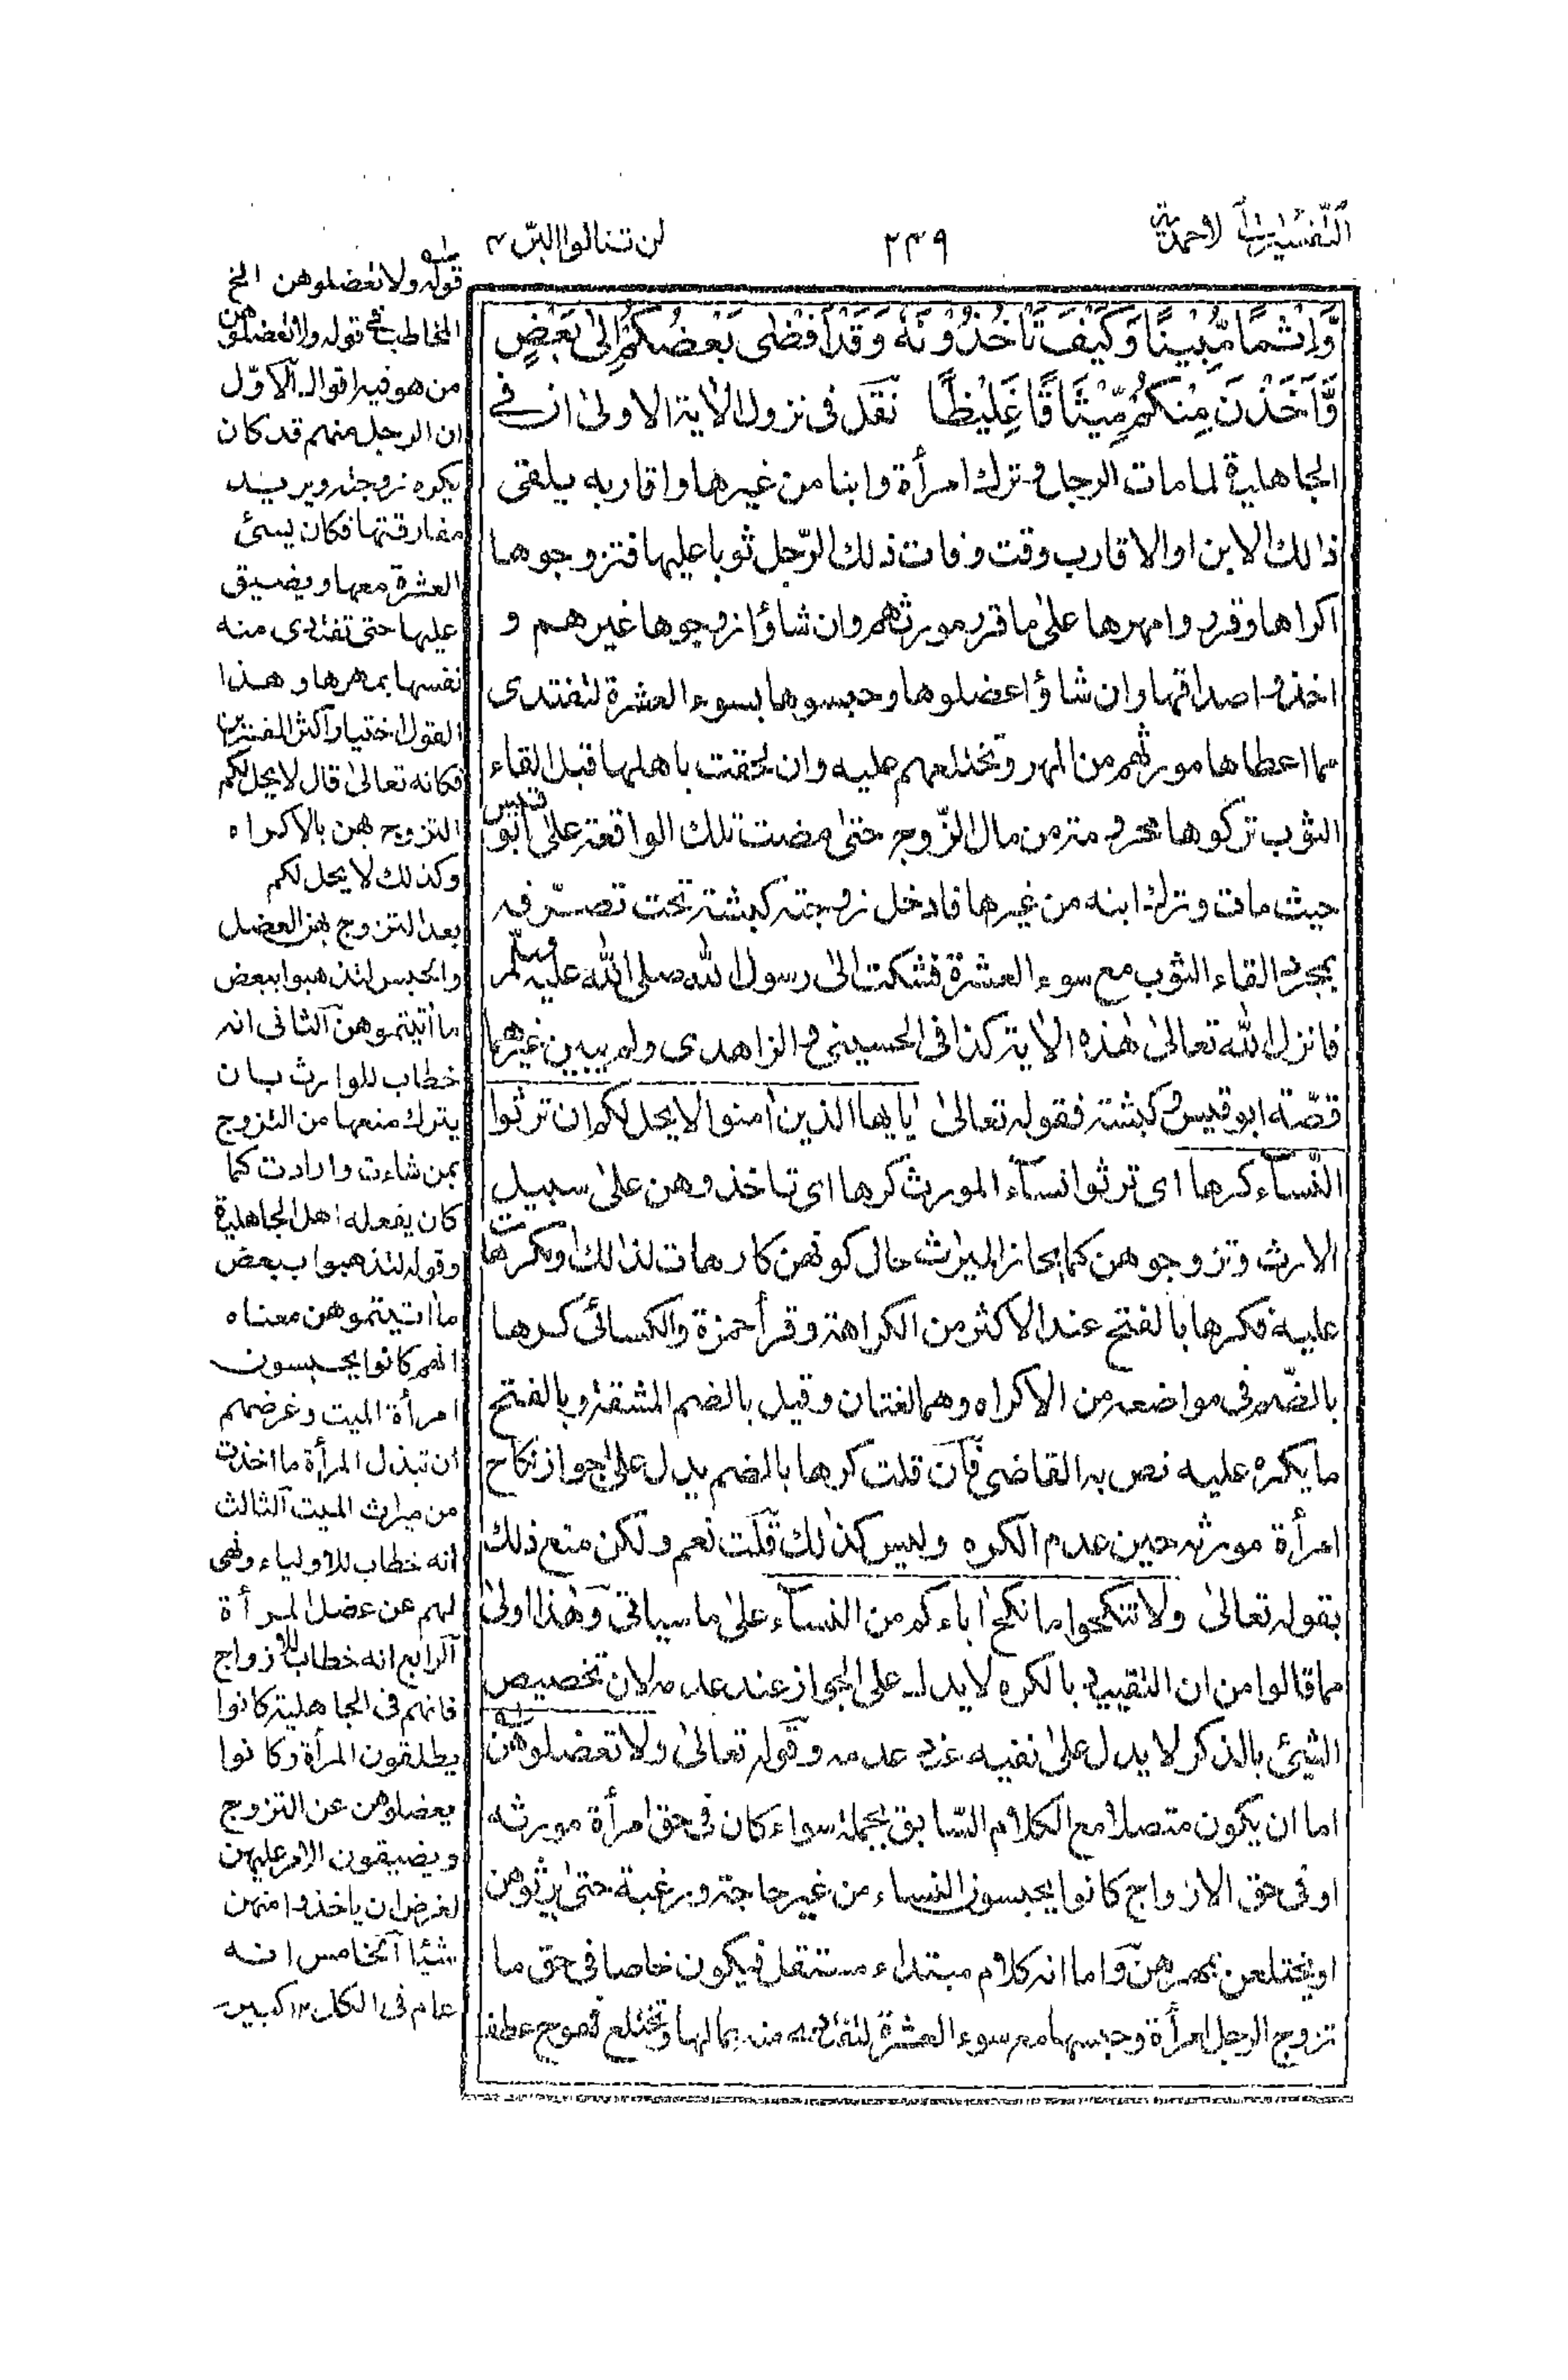 التفسيرات الاحمدية
٢٤٩
لن تنالوا البرّ ٤
وَّاِثْمًا مُّبِيْنًا وَكَيْفَ تَاْخُذُوْنَهٗ وَقَدْ اَفْضٰى بَعْضُكُمْ اِلٰى بَعْضٍ
وَّاَخَذْنَ مِنْكُمْ مِّيْثَاقًا غَلِيْظًا نقل فى نزول الاية الاولىٰ ان فے
الجاهلية لما مات الرجل وترك امرأة وابنا من غيرها واقاربه يلقى
ذالك الابن او الاقارب وقت وفات ذلك الرّجل ثوبا عليها فتزوجوها
اكراها وقرر وامهرها علىٰ ما قرر مورثهم وان شاؤا زوجوها غيرهم و
اخذوا صداقتها وان شاؤا عضلوها وحبسوها بسوء العشرة لتفتدى
مما اعطاها مورثهم من المهر وتختلعهم عليه وان لحقت باهلها قبل القاء
الثوب تركوها محرومة من مال الزّوج حتىٰ مضت تلك الواقعة علىٰ ابو قيس
حيث مات وترك ابنه من غيرها فادخل زوجته كبشة تحت تصرّفه
بمجرد القاء الثوب مع سوء العشرة فشكت الىٰ رسول الله صلى الله عليه وسلّم
فانزل الله تعالىٰ هٰذه الاية كذا فى الحسينى والزاهدى ولم يبين غيرهما
قصّة ابو قيس وكبشة فقوله تعالىٰ يٰايها الذين اٰمنوا لا يحل لكم ان ترثوا
النّسآء كرها اى ترثوا نسآء المورث كرها اى تاخذوهن علىٰ سبيل
الارث وتزوجوهن كما يجاز الميراث حال كونهن كارهات لذٰلك او مكرهات
عليه فكرها بالفتح عند الاكثر من الكراهة وقرأ حمزة والكسائى كرها
بالضّم فى مواضعه من الاكراه وهما لغتان وقيل بالضم المشقة وبالفتح
ما يكره عليه نص به القاضى فآن قلت كرها بالضم يدل على جواز نكاح
امرأة مورثه حين عدم الكره وليس كذٰلك قلت نعم ولكن منع ذلك
بقوله تعالىٰ ولا تنكحوا ما نكح اٰباءكم من النسآء علىٰ ما سياتى وهٰذا اولىٰ
مما قالوا من ان التقييد بالكره لا يدل على الجواز عند عدمه لان تخصيص
الشيئ بالذكر لا يدل علىٰ نفيه عند عدمه وقوله تعالىٰ ولا تعضلوهن
اما ان يكون متصلا مع الكلام السّابق بجملة سواء كان فى حق امرأة مورثه
او فى حق الازواج كانوا يحبسون النساء من غير حاجة ورغبة حتىٰ يرثوهن
او يختلعن بمهرهن واما انه كلام مبتداء مستقل فيكون خاصا فى حق ما
تزوج الرجل امرأة وحبسها مع سوء العشرة منه بمالها وتختلع فهو عطف
قوله ولا تعضلوهن الخ
المخاطب فى قوله ولا تعضلوهن
من هو فيه اقوال الاوّل
ان الرجل منهم قد كان
يكره زوجته ويريد
مفارقتها فكان يسئ
العشرة معها ويضيق
عليها حتى تفتدى منه
نفسها بمهرها وهذا
القول اختيار اكثر المفسرين
فكانه تعالىٰ قال لا يحل لكم
التزوج بهن بالاكراه
وكذلك لا يحل لكم
بعد التزوج بهن العضل
والحبس لتذهبوا ببعض
ما اٰتيتموهن الثانى انه
خطاب للوارث بان
يترك منعها من التزوج
بمن شاءت وارادت كما
كان يفعله اهل الجاهلية
وقوله لتذهبوا ببعض
ما اٰتيتموهن معناه
انهم كانوا يحبسون
امرأة الميت وغرضهم
ان تبذل المرأة ما اخذت
من ميراث الميت الثالث
انه خطاب للاولياء ونهى
لهم عن عضل المرأة
الرابع انه خطاب للازواج
فانهم فى الجاهلية كانوا
يطلقون المرأة وكانوا
يعضلوهن عن التزوج
ويضيقون الامر عليهن
لغرض ان ياخذوا منهن
شيئا الخامس انه
عام فى الكل ١٢ كبير